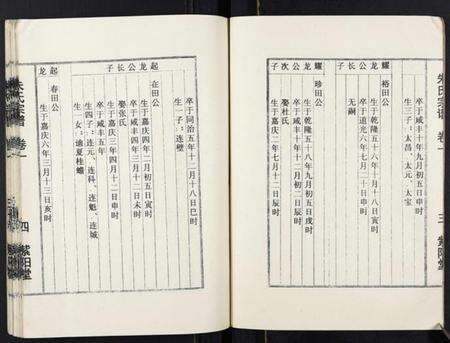 朱氏宗谱 卷一
三 紫阳堂
耀
裕田公
生于乾隆五十六年十一月十八日寅时
卒于咸丰十年九月初五日申时
生三子：太昌、太元、太宝
耀公次子
珍田公
生于乾隆五十八年二月初五日戌时
卒于道光六年七月二十日申时
无嗣
娶杜氏
生于嘉庆二年十月初二日辰时
卒于同治五年十二月十八日巳时
生一子：连璧
起龙公长子
在田公
生于嘉庆四年二月初五日寅时
卒于咸丰四年十月十二日未时
娶张氏
生于嘉庆三年四月十二日申时
卒于咸丰五年
生四子：连元、连科、连魁、连城
生一女：适夏桂蟾
起龙
春田公
生于嘉庆六年三月十三日亥时
朱氏宗谱 卷一
四 紫阳堂